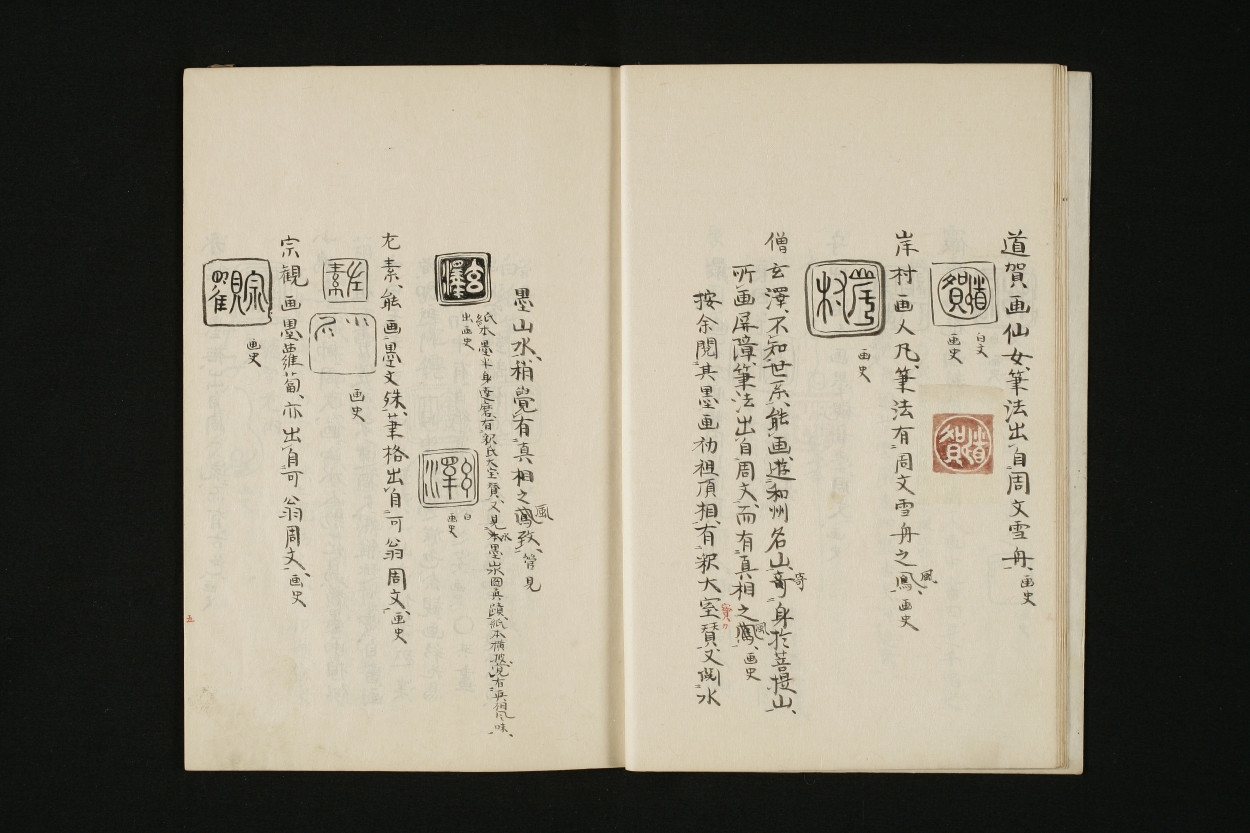 道賀画仙女筆法出自周文雪舟画史
道賀
白文
画史
道賀
岸村画人凡筆法有周文雪舟之風画史
岸村
画史
僧玄澤不知世系能画遊和州名山寄身於菩提山
所画屏障筆法出自周文而有真相之風画史
按余閲其墨画初祖頂相有釈大室賛又閲水
墨山水稍覚有真相之風致管見
紙本墨半身達磨有釈氏大室賛又見水墨山水図
紙本横披覚有真相風味
玄澤
出画史
玄澤
白
画史
左素能画墨文殊筆格出自可翁周文画史
左素
画史
宗観画墨蘿蔔亦出自可翁周文画史
宗観
画史
五